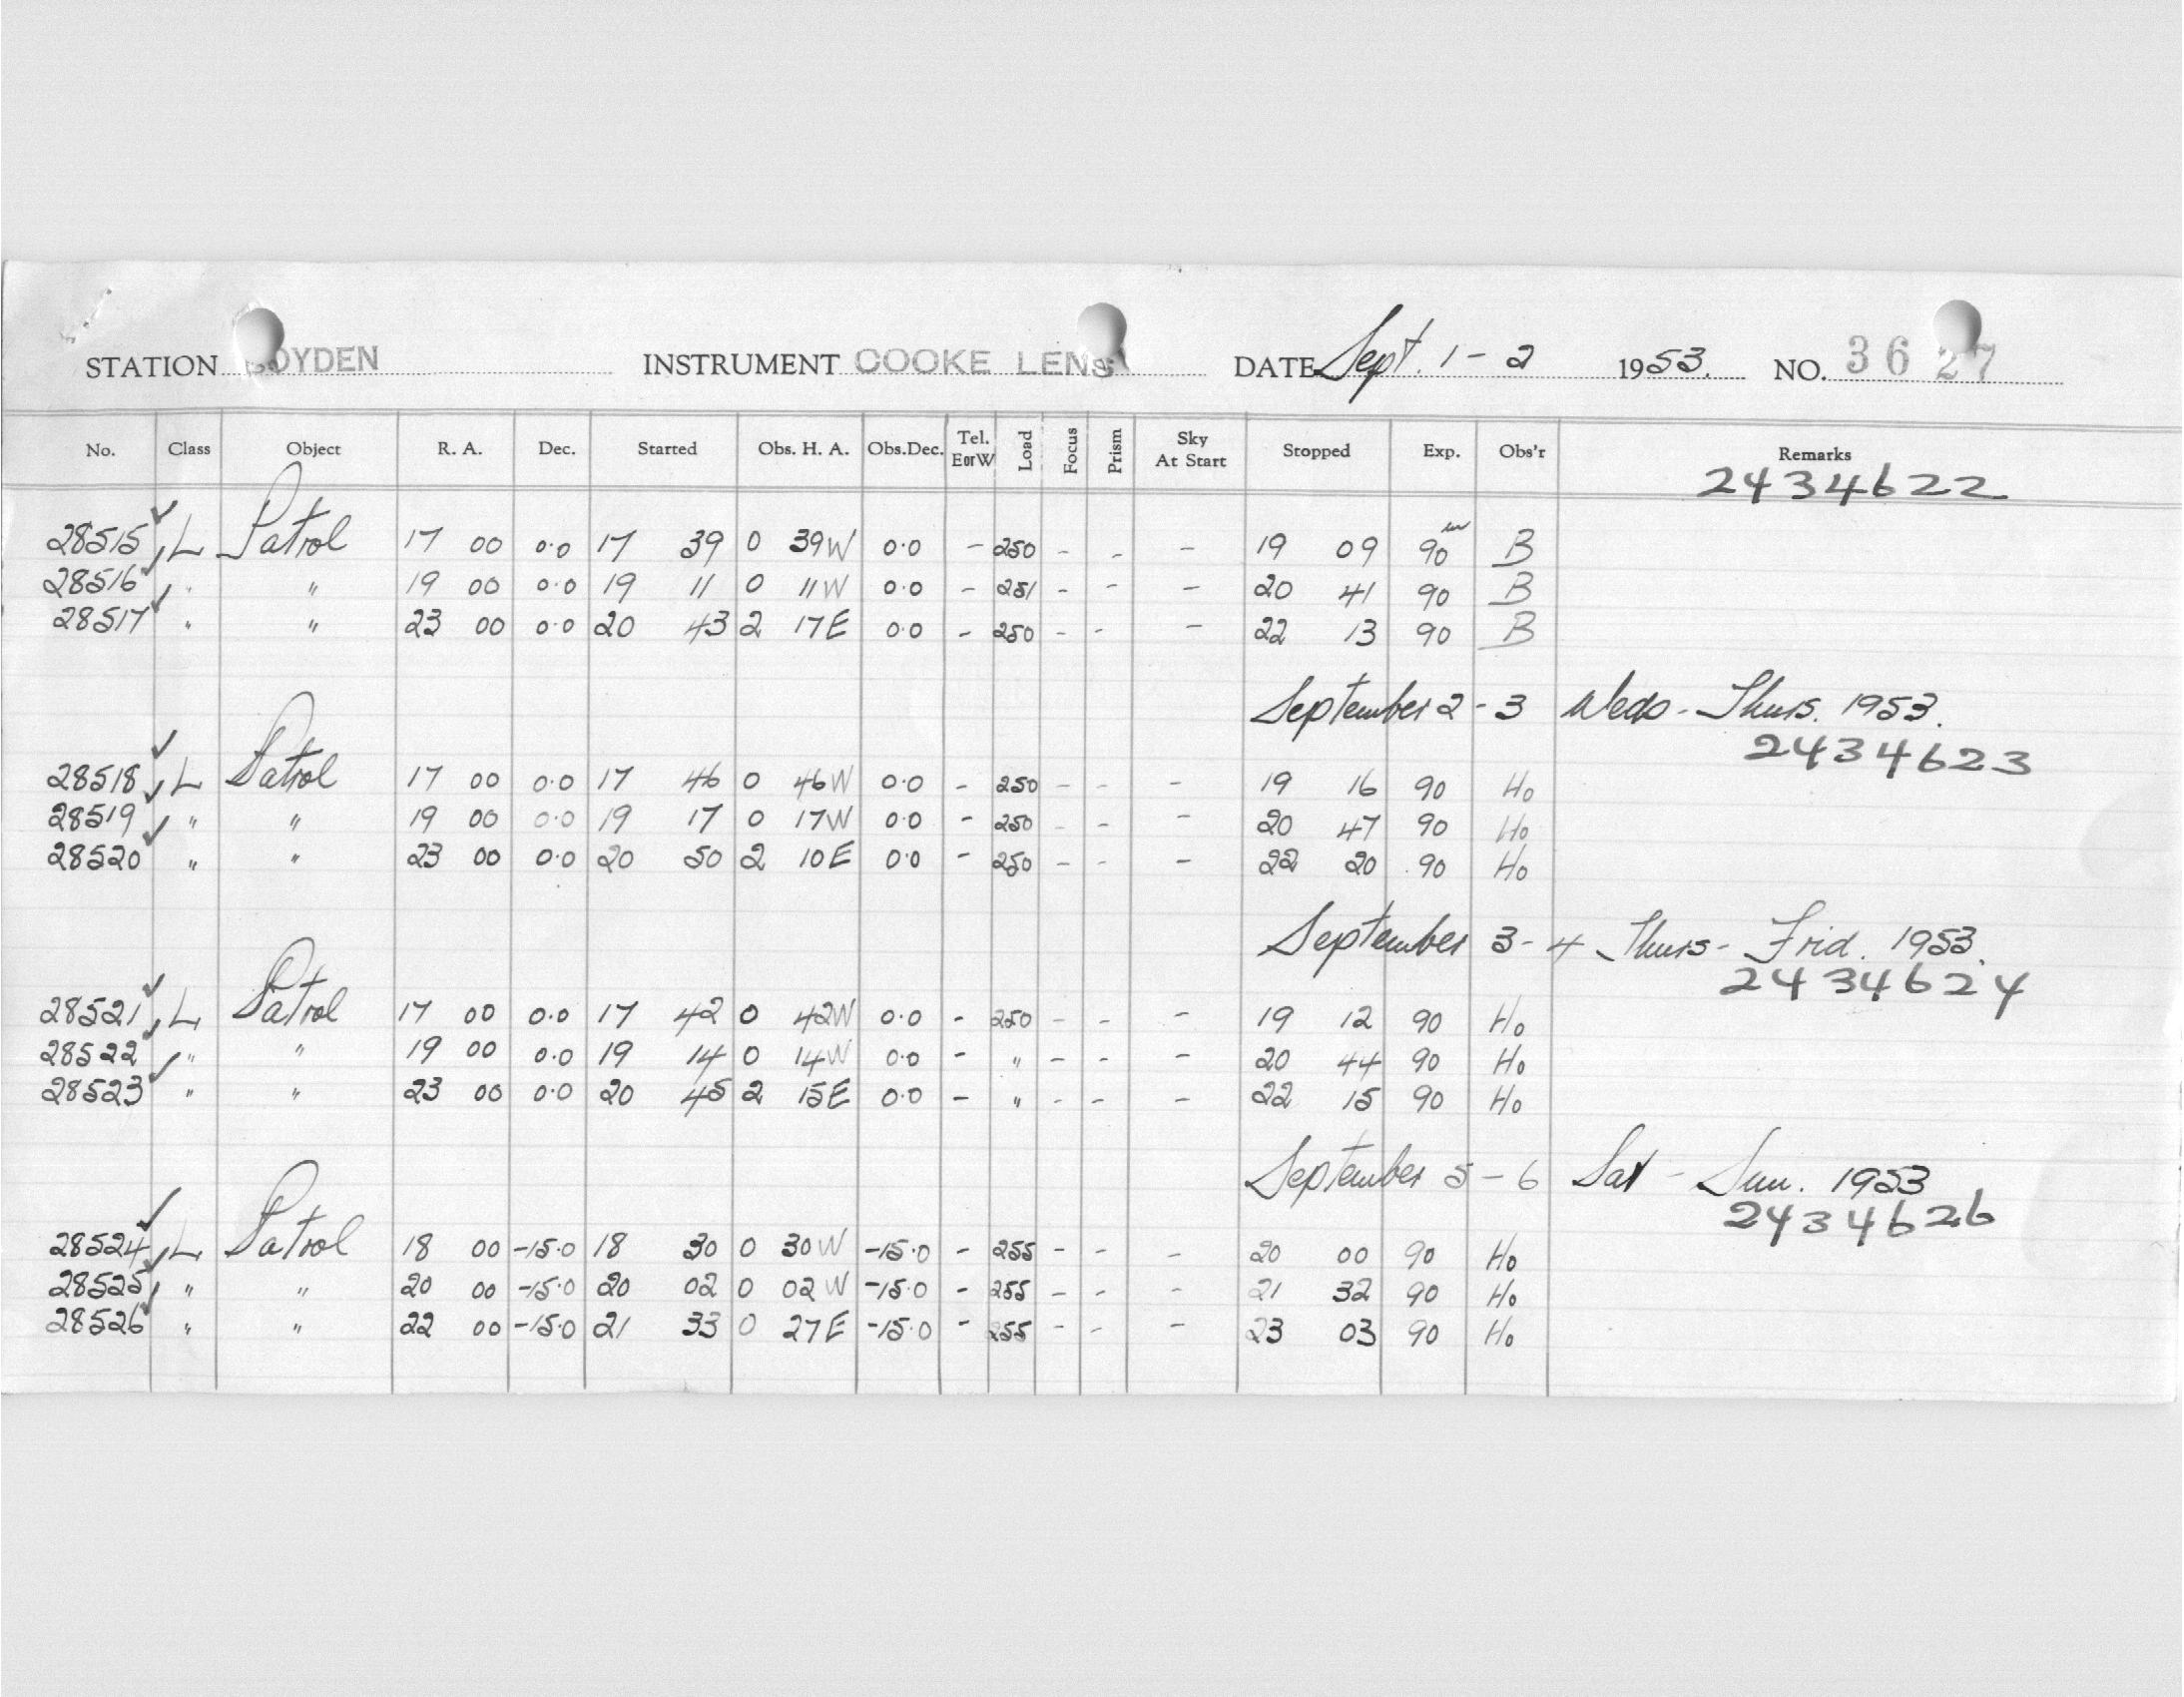 STATION BOYDEN INSTRUMENT COOKE LENS DATE Sept. 1 - 2 1953. NO. 3627
No. Class Object R. A. Dec. Started Obs. H. A. Obs.Dec. Tel. E or W Load Focus Prism Sky At Start Stopped Exp. Obs'r Remarks
2434622
28515 L Patrol 17 00 0.0 17 39 0 39W 0.0 - 250 - - - 19 09 90m B
28516 " " 19 00 0.0 19 11 0 11W 0.0 - 251 - - - 20 41 90 B
28517 " " 23 00 0.0 20 43 2 17E 0.0 - 250 - - - 22 13 90 B
September 2 - 3 Weds - Thurs. 1953.
2434623
28518 L Patrol 17 00 0.0 17 46 0 46W 0.0 - 250 - - - 19 16 90 Ho
28519 " " 19 00 0.0 19 17 0 17W 0.0 - 250 - - - 20 47 90 Ho
28520 " " 23 00 0.0 20 50 2 10E 0.0 - 250 - - - 22 20 90 Ho
September 3 - 4 Thurs - Frid. 1953.
2434624
28521 L Patrol 17 00 0.0 17 42 0 42W 0.0 - 250 - - - 19 12 90 Ho
28522 " " 19 00 0.0 19 14 0 14W 0.0 - " - - - 20 44 90 Ho
28523 " " 23 00 0.0 20 45 2 15E 0.0 - " - - - 22 15 90 Ho
September 5 - 6 Sat - Sun. 1953
2434626
28524 L Patrol 18 00 -15.0 18 30 0 30W -15.0 - 255 - - - 20 00 90 Ho
28525 " " 20 00 -15.0 20 02 0 02W -15.0 - 255 - - - 21 32 90 Ho
28526 " " 22 00 -15.0 21 33 0 27E -15.0 - 255 - - - 23 03 90 Ho